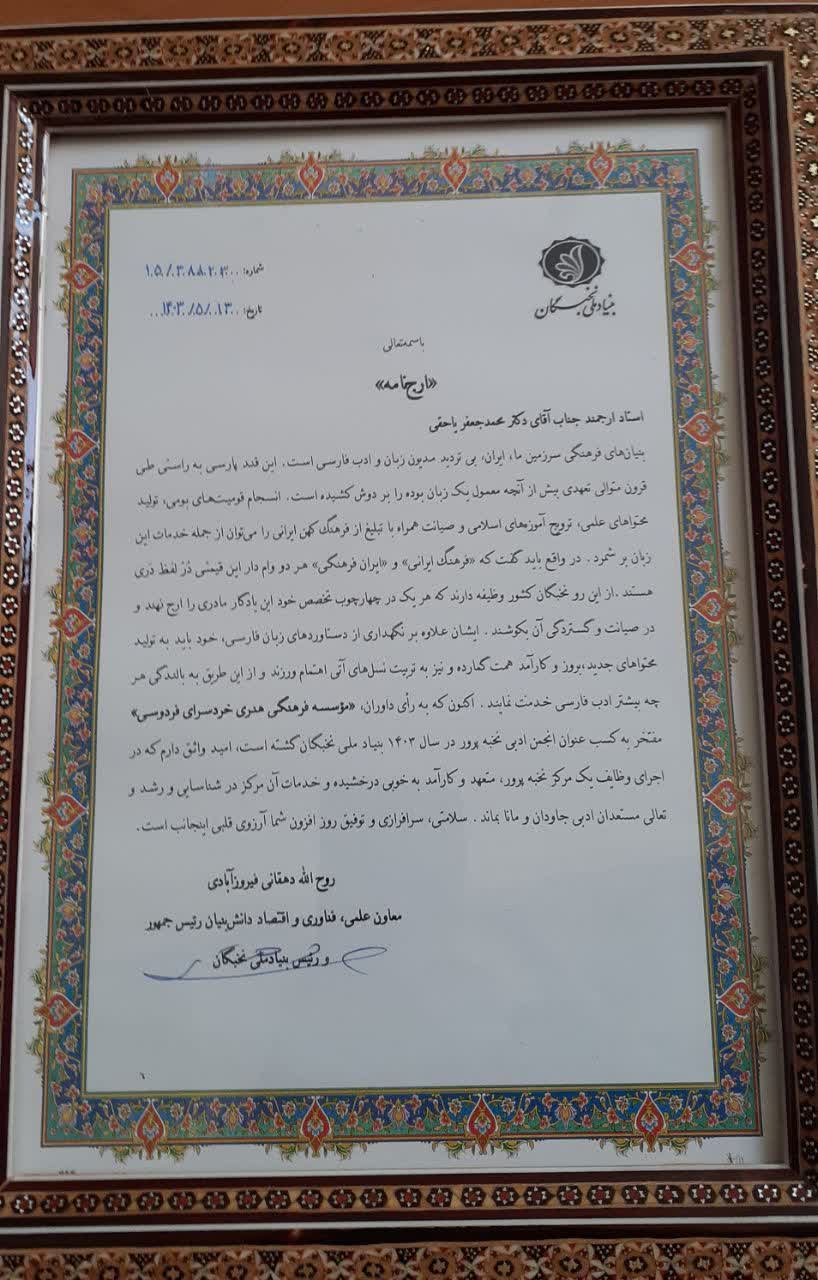 بنیاد ملی نخبگان
شماره: ۱۵/۳۸۸۲۳۰
تاریخ: ۱۴۰۳/۵/۱۳
باسمه‌تعالی
«ارج‌نامه»
استاد ارجمند جناب آقای دکتر محمدجعفر یاحقی
بنیان‌های فرهنگی سرزمین ما، ایران، بی تردید مدیون زبان و ادب فارسی است. این قند پارسی به راستی طی
قرون متوالی تعهدی بیش از آنچه معمول یک زبان بوده را بر دوش کشیده است. انسجام قومیت‌های بومی، تولید
محتواهای علمی، ترویج آموزه‌های اسلامی و صیانت همراه با تبلیغ از فرهنگ کهن ایرانی را می‌توان از جمله خدمات این
زبان بر شمرد. در واقع باید گفت که «فرهنگ ایرانی» و «ایران فرهنگی» هر دو وام دار این قیمتی دُرّ لفظ دَری
هستند .از این رو نخبگان کشور وظیفه دارند که هر یک در چهارچوب تخصص خود این یادگار مادری را ارج نهند و
در صیانت و گستردگی آن بکوشند. ایشان علاوه بر نگهداری از دستاوردهای زبان فارسی، خود باید به تولید
محتواهای جدید،بروز و کارآمد همت گمارده و نیز به تربیت نسل‌های آتی اهتمام ورزند و از این طریق به بالندگی هر
چه بیشتر ادب فارسی خدمت نمایند. اکنون که به رأی داوران، «مؤسسه فرهنگی هنری خردسرای فردوسی»
مفتخر به کسب عنوان انجمن ادبی نخبه پرور در سال ۱۴۰۳ بنیاد ملی نخبگان گشته است، امید واثق دارم که در
اجرای وظایف یک مرکز نخبه پرور، متعهد و کارآمد به خوبی درخشیده و خدمات آن مرکز در شناسایی و رشد و
تعالی مستعدان ادبی جاودان و مانا بماند. سلامتی، سرافرازی و توفیق روز افزون شما آرزوی قلبی اینجانب است.
روح الله دهقانی فیروزآبادی
معاون علمی، فناوری و اقتصاد دانش‌بنیان رئیس جمهور
و رئیس بنیاد ملی نخبگان